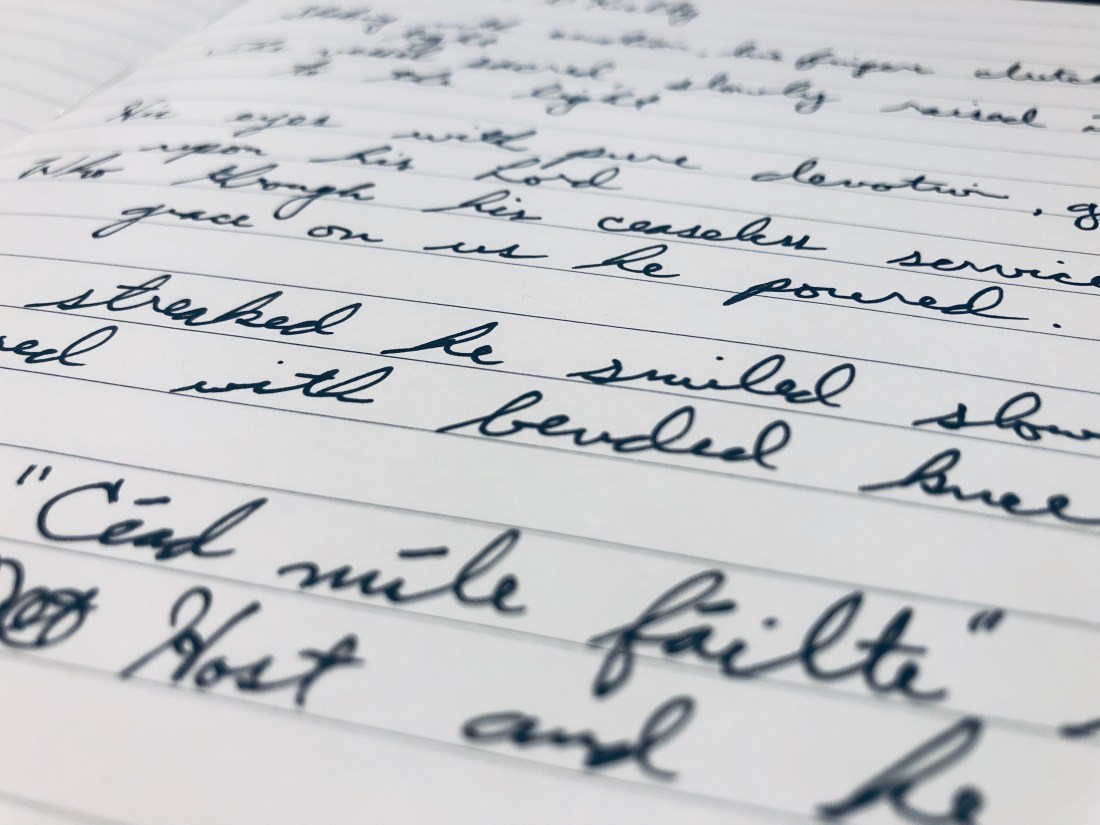 with emotion, his finger
slowly raised
to the light
His eyes with pure devotion,
upon his Lord
Who through his ceaseless service
grace on us he poured.
streaked he smiled slow
with bended knee
"Céad míle fáilte"
Host and he